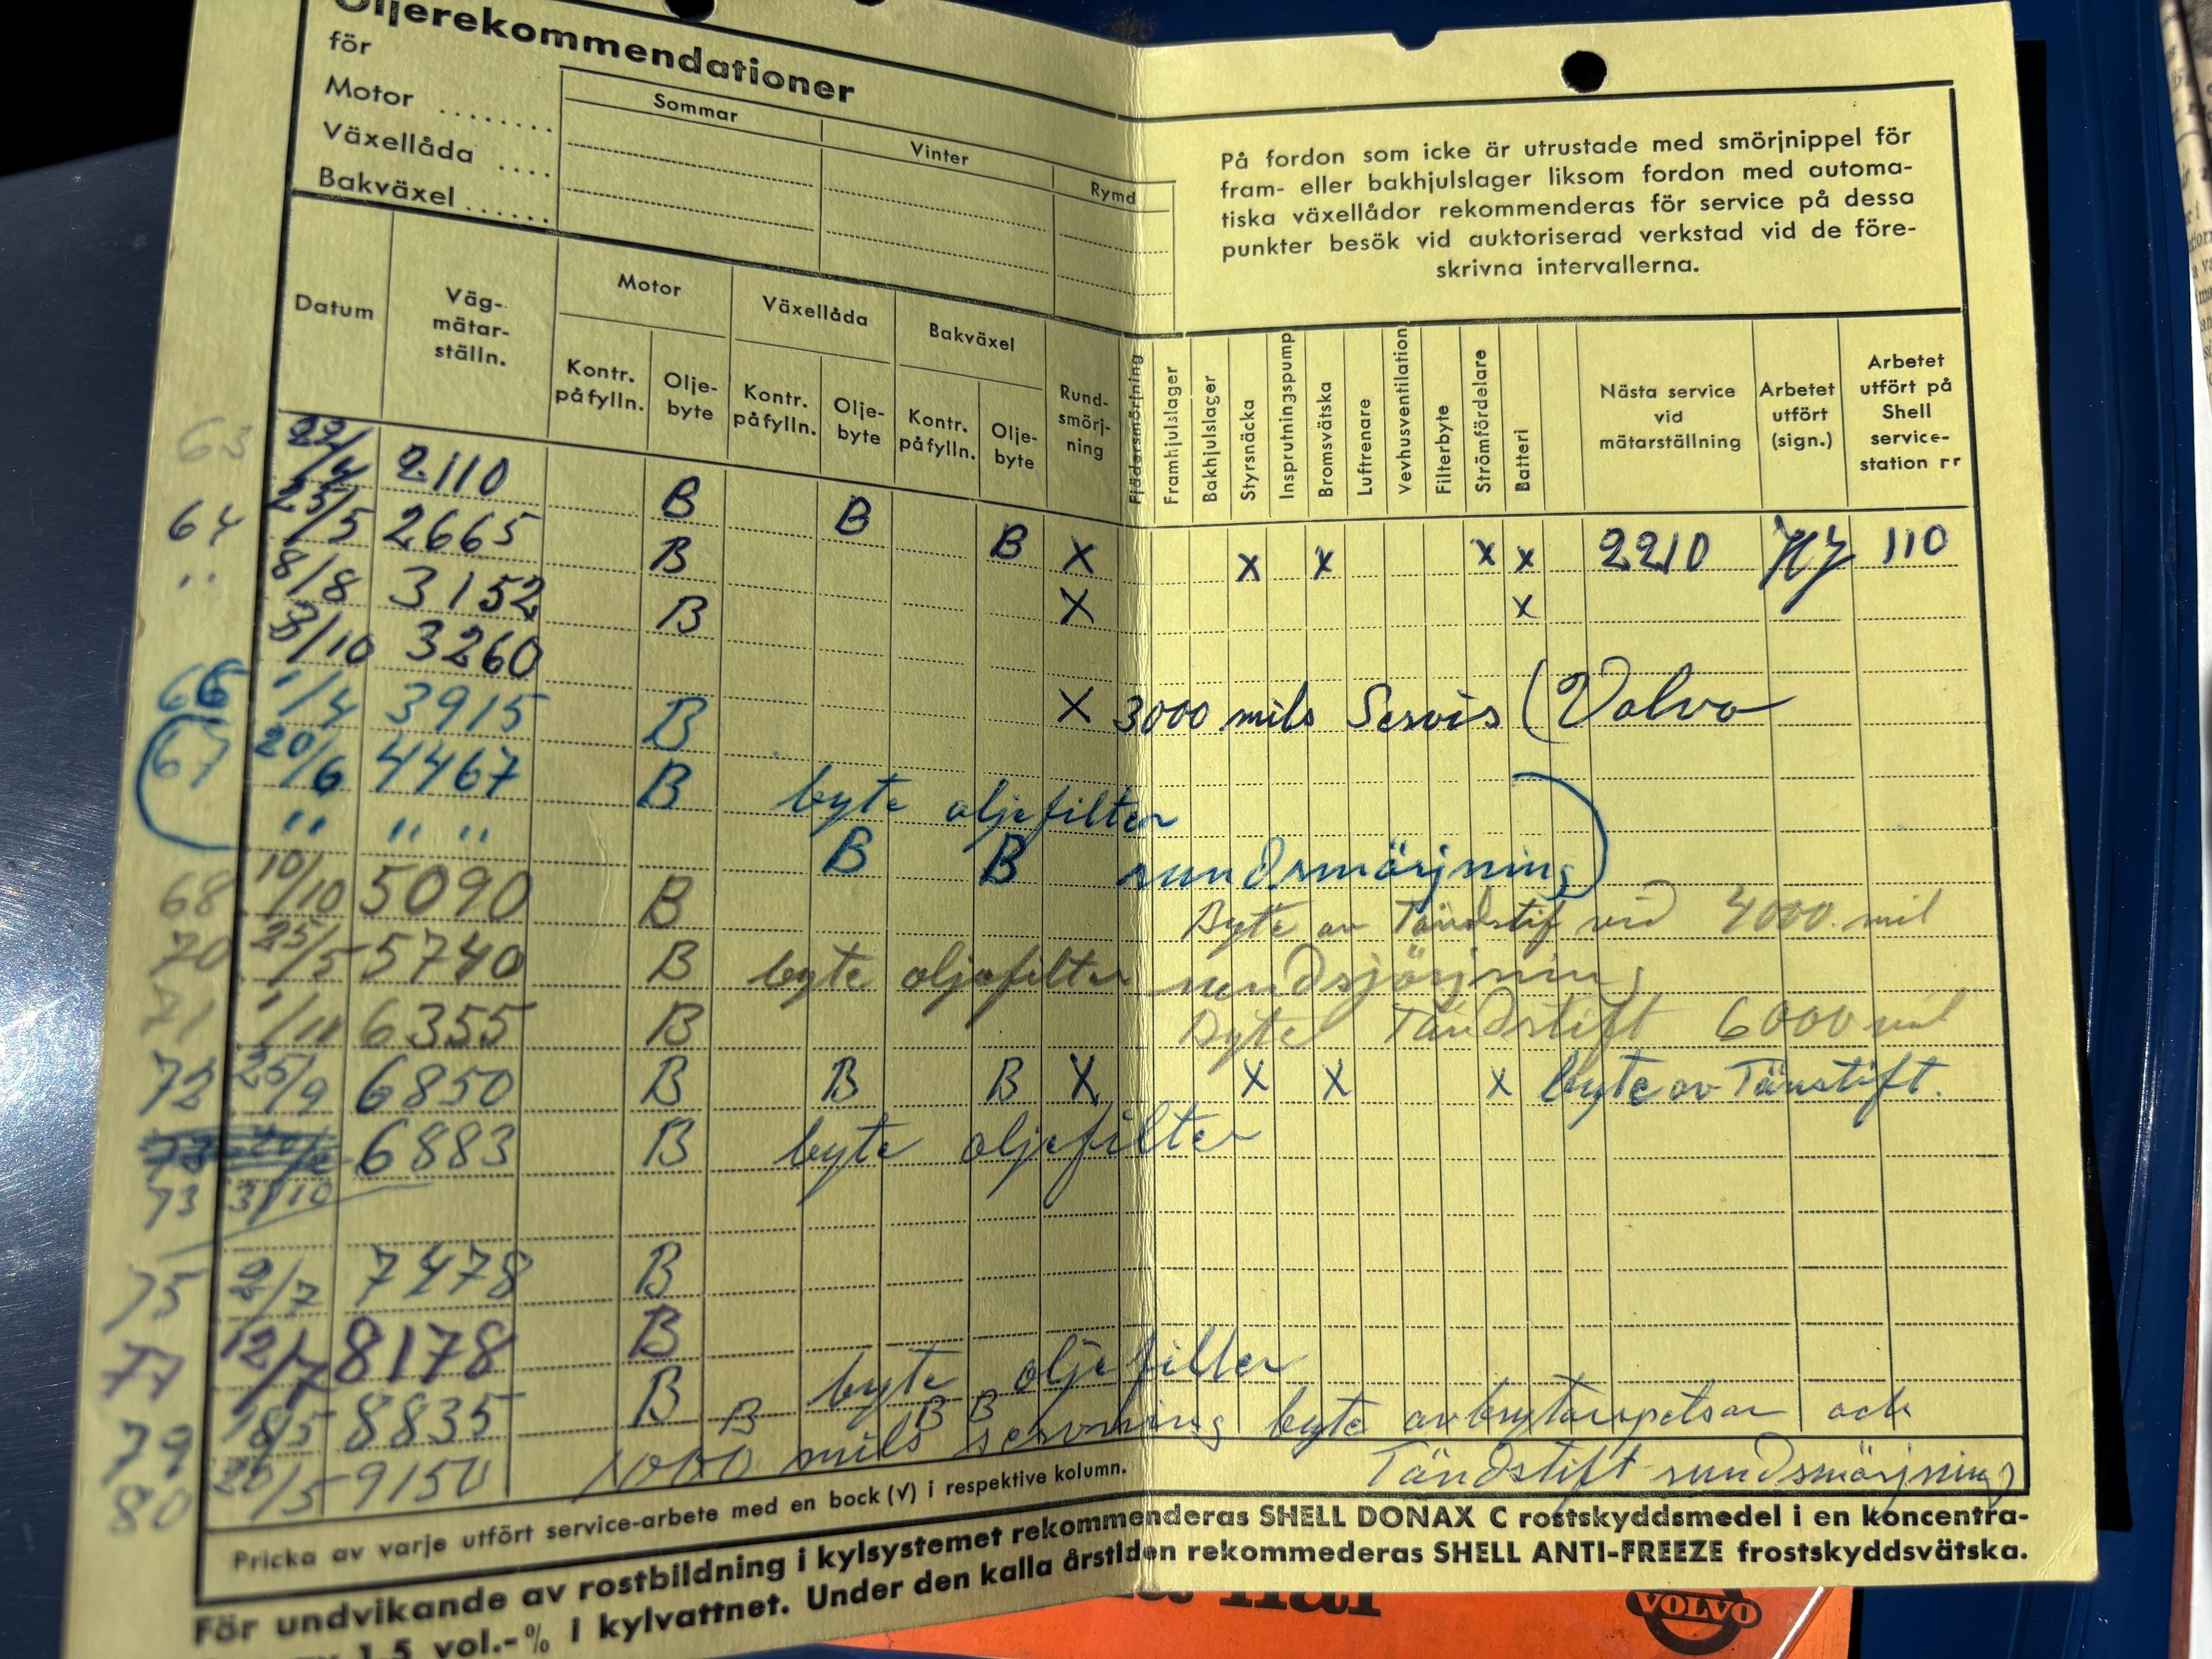 Oljerekommendationer
för
Motor ........
Växellåda ....
Bakväxel ......
Sommar
Vinter
Rymd
På fordon som icke är utrustade med smörjnippel för
fram- eller bakhjulslager liksom fordon med automa-
tiska växellådor rekommenderas för service på dessa
punkter besök vid auktoriserad verkstad vid de före-
skrivna intervallerna.
Datum
Väg-
mätar-
ställn.
Motor
Växellåda
Bakväxel
Kontr.
påfylln.
Olje-
byte
Kontr.
påfylln.
Olje-
byte
Kontr.
påfylln.
Olje-
byte
Rund-
smörj-
ning
Fjädersmörjning
Framhjulslager
Bakhjulslager
Styrsnäcka
Insprutningspump
Bromsvätska
Luftrenare
Vevhusventilation
Filterbyte
Strömfördelare
Batteri
Nästa service
vid
mätarställning
Arbetet
utfört
(sign.)
Arbetet
utfört på
Shell
service-
station nr
63 22/4 2110 B B B X X X X X 2210 HJ 110
64 25/5 2665 B X X
" 8/8 3152 B
8/10 3260 X 3000 mils Servis (Volvo
66 1/4 3915 B
67 20/6 4467 B byte oljefilter
" " " B B rundsmörjning)
68 10/10 5090 B Byte av Tändstif vid 4000 mil
70 25/5 5740 B byte oljefilter rundsjörjning
71 1/11 6355 B Byte Tändstift 6000 mil
72 25/9 6850 B B B X X X X byte av Tänstift.
6883 B byte oljefilter
73 31/10
75 2/7 7478 B
77 12/7 8178 B
79 18/5 8835 B byte oljefilter
80 20/5 9150 B B B 1000 mils servning byte avbrytarspetsar och
Tändstift rundsmörjning
Pricka av varje utfört service-arbete med en bock (√) i respektive kolumn.
För undvikande av rostbildning i kylsystemet rekommenderas SHELL DONAX C rostskyddsmedel i en koncentra-
av 1,5 vol.-% i kylvattnet. Under den kalla årstiden rekommederas SHELL ANTI-FREEZE frostskyddsvätska.
VOLVO